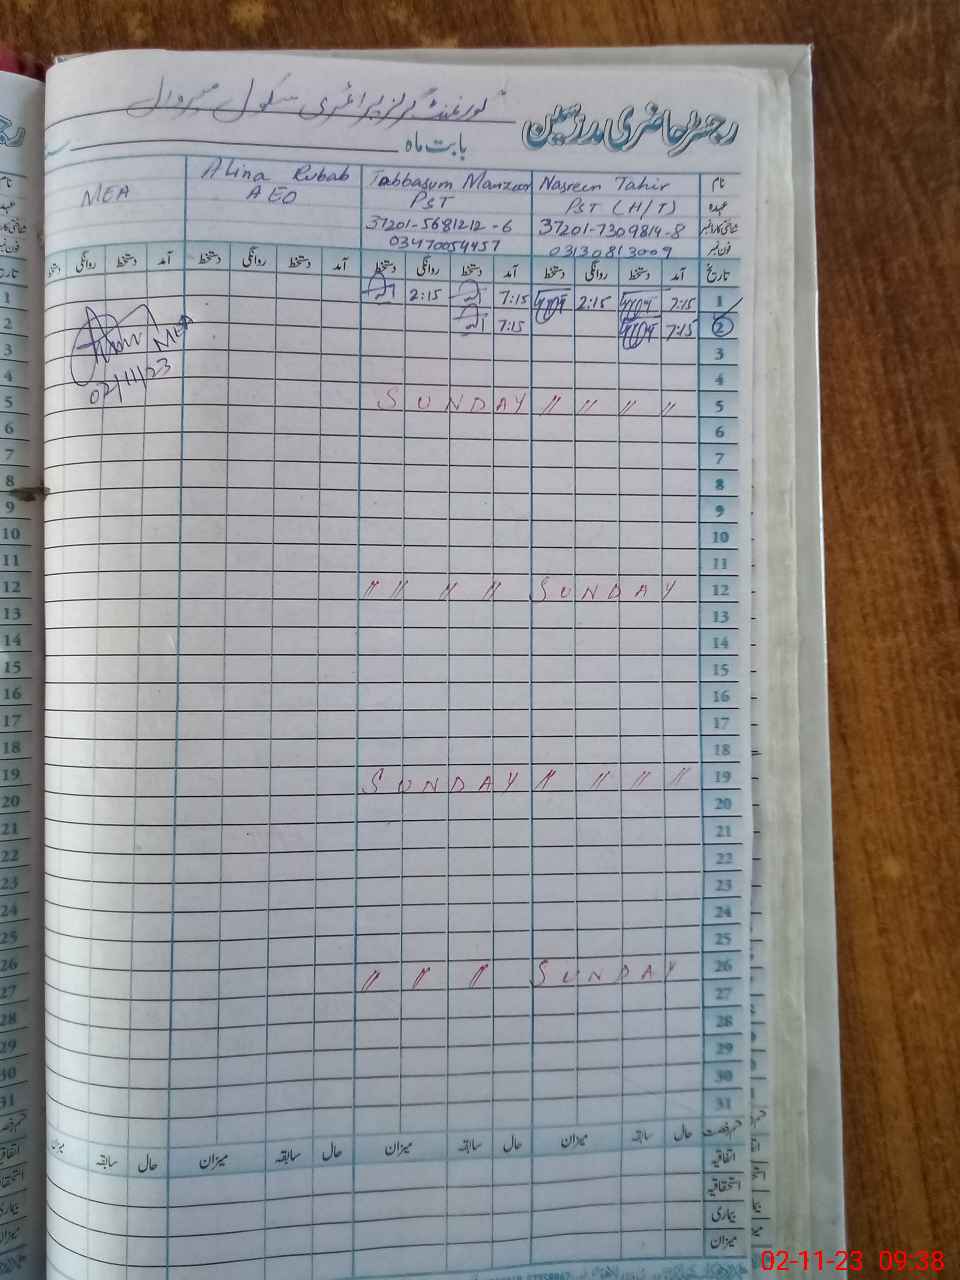 گورنمنٹ گرلز پرائمری سکول
رجسٹر حاضری مدرسین
بابت ماہ
نام Nasreen Tahir Tabbasum Manzoor Alina Rubab MEA
عہدہ PST (H/T) PST AEO
37201-7309814-8 37201-5681212-6
فون نمبر 03130813009 03470054457
تاریخ آمد دستخط روانگی دستخط آمد دستخط روانگی دستخط آمد دستخط روانگی دستخط آمد دستخط روانگی
1 7:15 2:15 7:15 2:15
2 7:15 7:15
3
4
5 SUNDAY 〃 〃 〃 〃
6
7
8
9
10
11
12 〃 〃 〃 〃 SUNDAY
13
14
15
16
17
18
19 SUNDAY 〃 〃 〃 〃
20
21
22
23
24
25
26 〃 〃 〃 SUNDAY
27
28
29
30
31
MEA
02/11/23
حال سابقہ میزان حال سابقہ میزان حال سابقہ میزان حال سابقہ میزان
اتفاقیہ
استحقاقیہ
بیماری
میزان
02-11-23 09:38